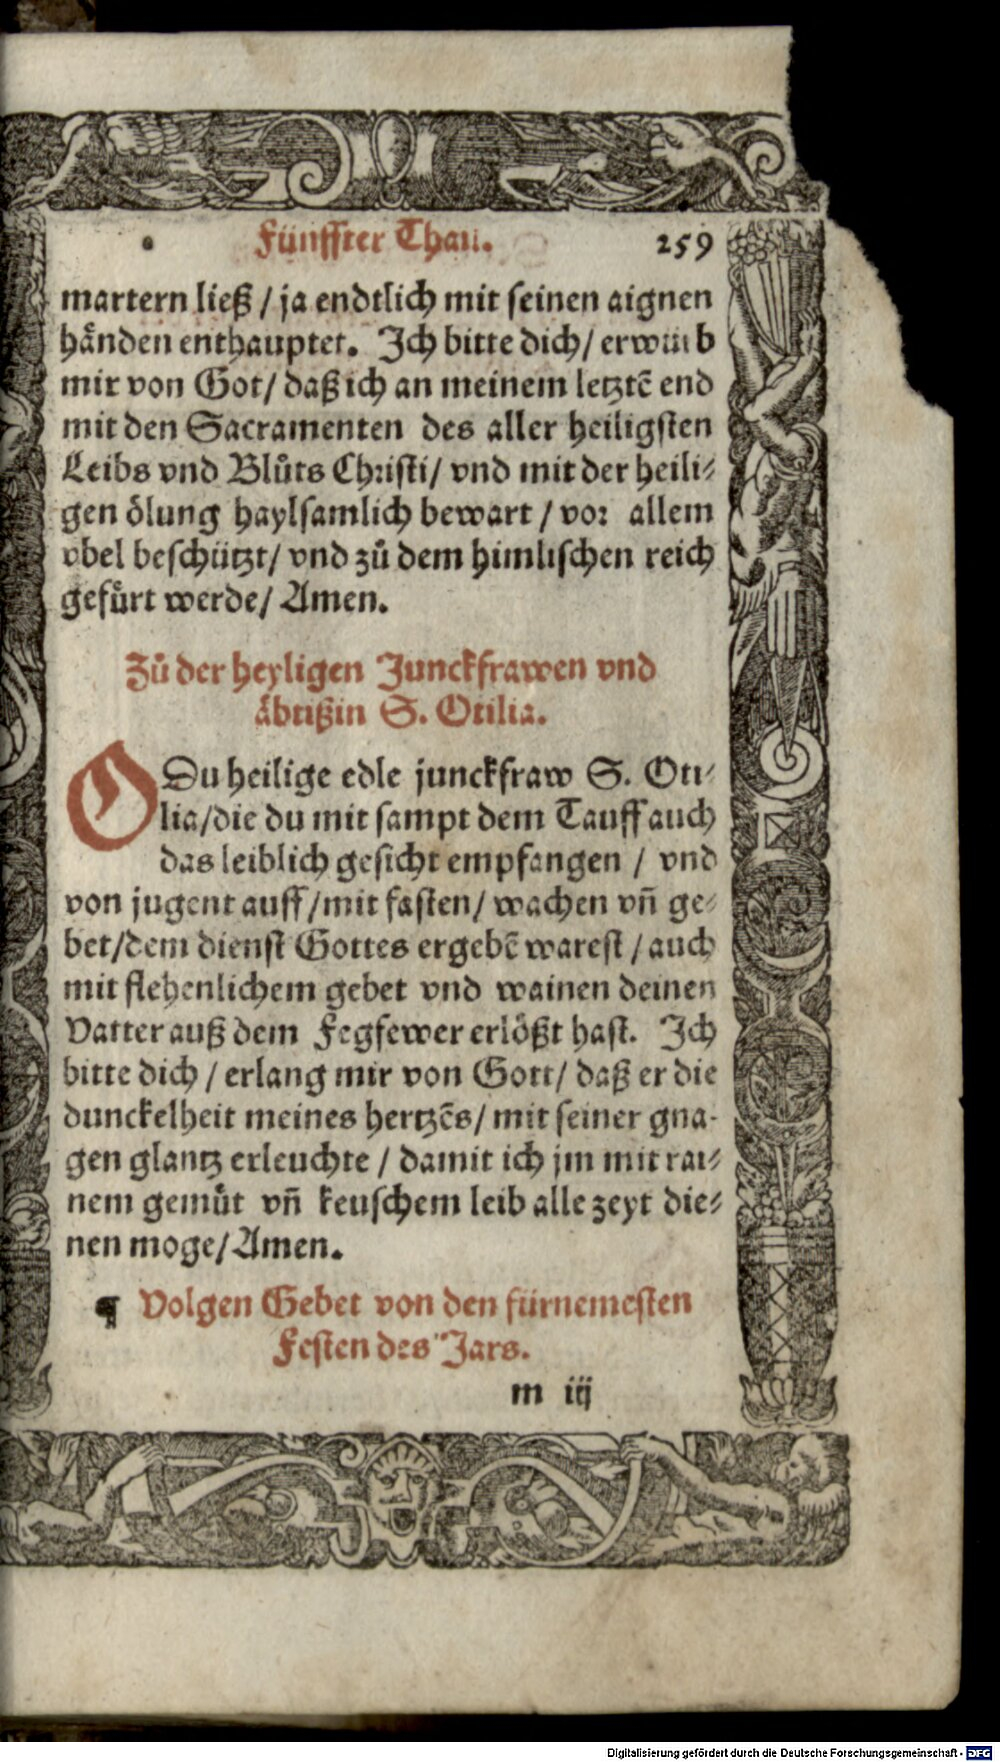 Fünffter Thail. 259
martern ließ / ja endtlich mit seinen aignen
hånden enthauptet. Ich bitte dich / erwirb
mir von Got / daß ich an meinem letztē end
mit den Sacramenten des aller heiligsten
Leibs vnd Blůts Christi / vnd mit der heili⸗
gen ölung haylsamlich bewart / vor allem
vbel beschützt / vnd zů dem himlischen reich
gefůrt werde / Amen.
Zů der heyligen Junckfrawen vnd
äbtißin S. Otilia.
O Du heilige edle junckfraw S. Oti⸗
lia / die du mit sampt dem Tauff auch
das leiblich gesicht empfangen / vnd
von jugent auff / mit fasten / wachen vñ ge⸗
bet / dem dienst Gottes ergebē warest / auch
mit flehenlichem gebet vnd wainen deinen
Vatter auß dem Fegfewer erlößt hast. Ich
bitte dich / erlang mir von Gott / daß er die
dunckelheit meines hertzēs / mit seiner gna⸗
gen glantz erleuchte / damit ich jm mit rai⸗
nem gemůt vñ keuschem leib alle zeyt die⸗
nen moge / Amen.
¶ Volgen Gebet von den fürnemesten
Festen des Jars.
m iij
Digitalisierung gefördert durch die Deutsche Forschungsgemeinschaft - DFG